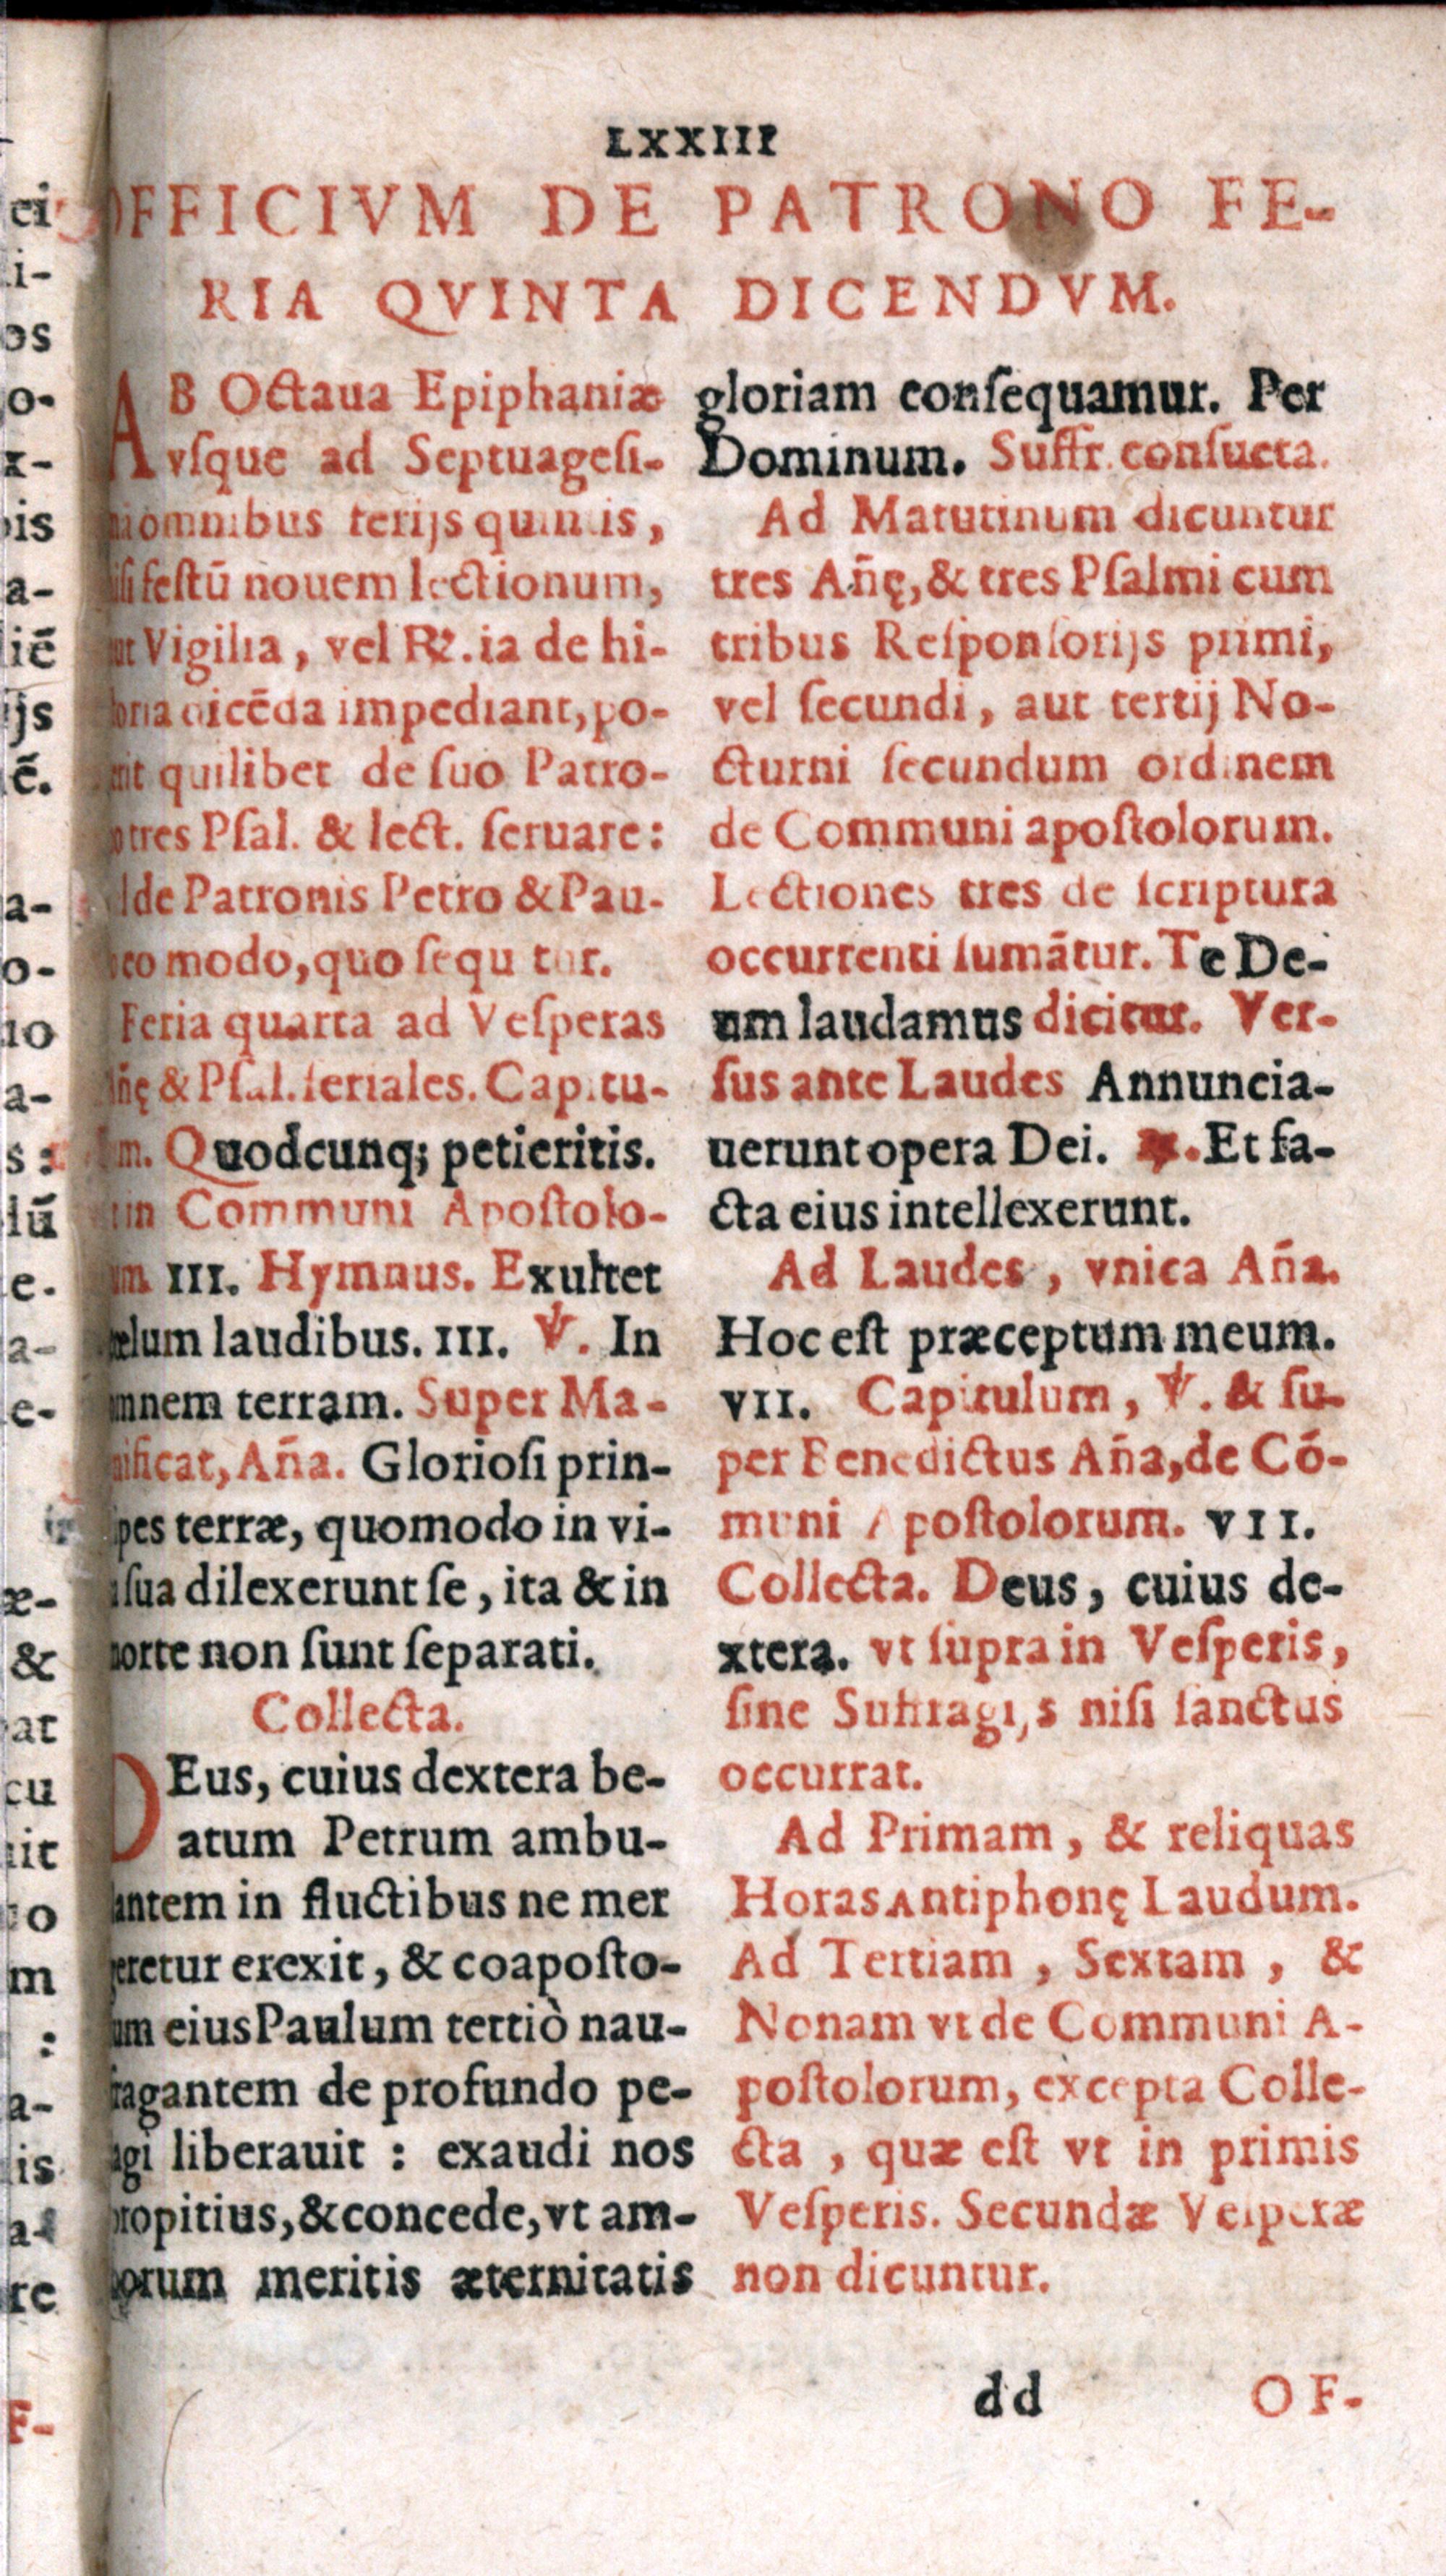 LXXIII
OFFICIVM DE PATRONO FE-
RIA QVINTA DICENDVM.
AB Octaua Epiphaniæ
vſque ad Septuageſi-
omnibus ferijs quintis,
feſtū nouem lectionum,
Vigilia, vel ℟.ia de hi-
dicēda impediant, po-
quilibet de ſuo Patro-
tres Pſal. & lect. ſeruare:
de Patronis Petro & Pau-
eo modo, quo ſequitur.
Feria quarta ad Veſperas
Añę & Pſal. feriales. Capitu-
m. Quodcunq; petieritis.
in Communi Apoſtolo-
III. Hymnus. Exultet
lum laudibus. III. ℣. In
mnem terram. Super Ma-
nificat, Aña. Glorioſi prin-
pes terræ, quomodo in vi-
ſua dilexerunt ſe, ita & in
morte non ſunt ſeparati.
Collecta.
DEus, cuius dextera be-
atum Petrum ambu-
lantem in fluctibus ne mer
geretur erexit, & coapoſto-
um eius Paulum tertiò nau-
fragantem de profundo pe-
agi liberauit : exaudi nos
propitius, & concede, vt am-
borum meritis æternitatis
gloriam conſequamur. Per
Dominum. Suffr. conſueta.
Ad Matutinum dicuntur
tres Añę, & tres Pſalmi cum
tribus Reſponſorijs primi,
vel ſecundi, aut tertij No-
cturni ſecundum ordinem
de Communi apoſtolorum.
Lectiones tres de ſcriptura
occurrenti ſumātur. Te De-
um laudamus dicitur. Ver-
ſus ante Laudes Annuncia-
uerunt opera Dei. ℟. Et fa-
cta eius intellexerunt.
Ad Laudes, vnica Aña.
Hoc eſt præceptum meum.
VII. Capitulum, ℣. & ſu-
per Benedictus Aña, de Cō-
muni Apoſtolorum. VII.
Collecta. Deus, cuius de-
xtera. vt ſupra in Veſperis,
ſine Suffragijs niſi ſanctus
occurrat.
Ad Primam, & reliquas
Horas Antiphonę Laudum.
Ad Tertiam, Sextam, &
Nonam vt de Communi A-
poſtolorum, excepta Colle-
cta, quæ eſt vt in primis
Veſperis. Secundæ Veſperæ
non dicuntur.
dd OF-